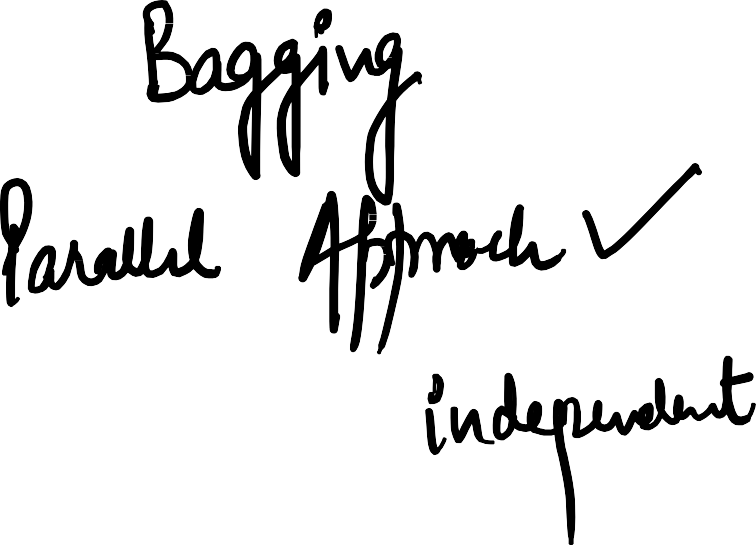 Bagging
Parallel Approach ✓
independent